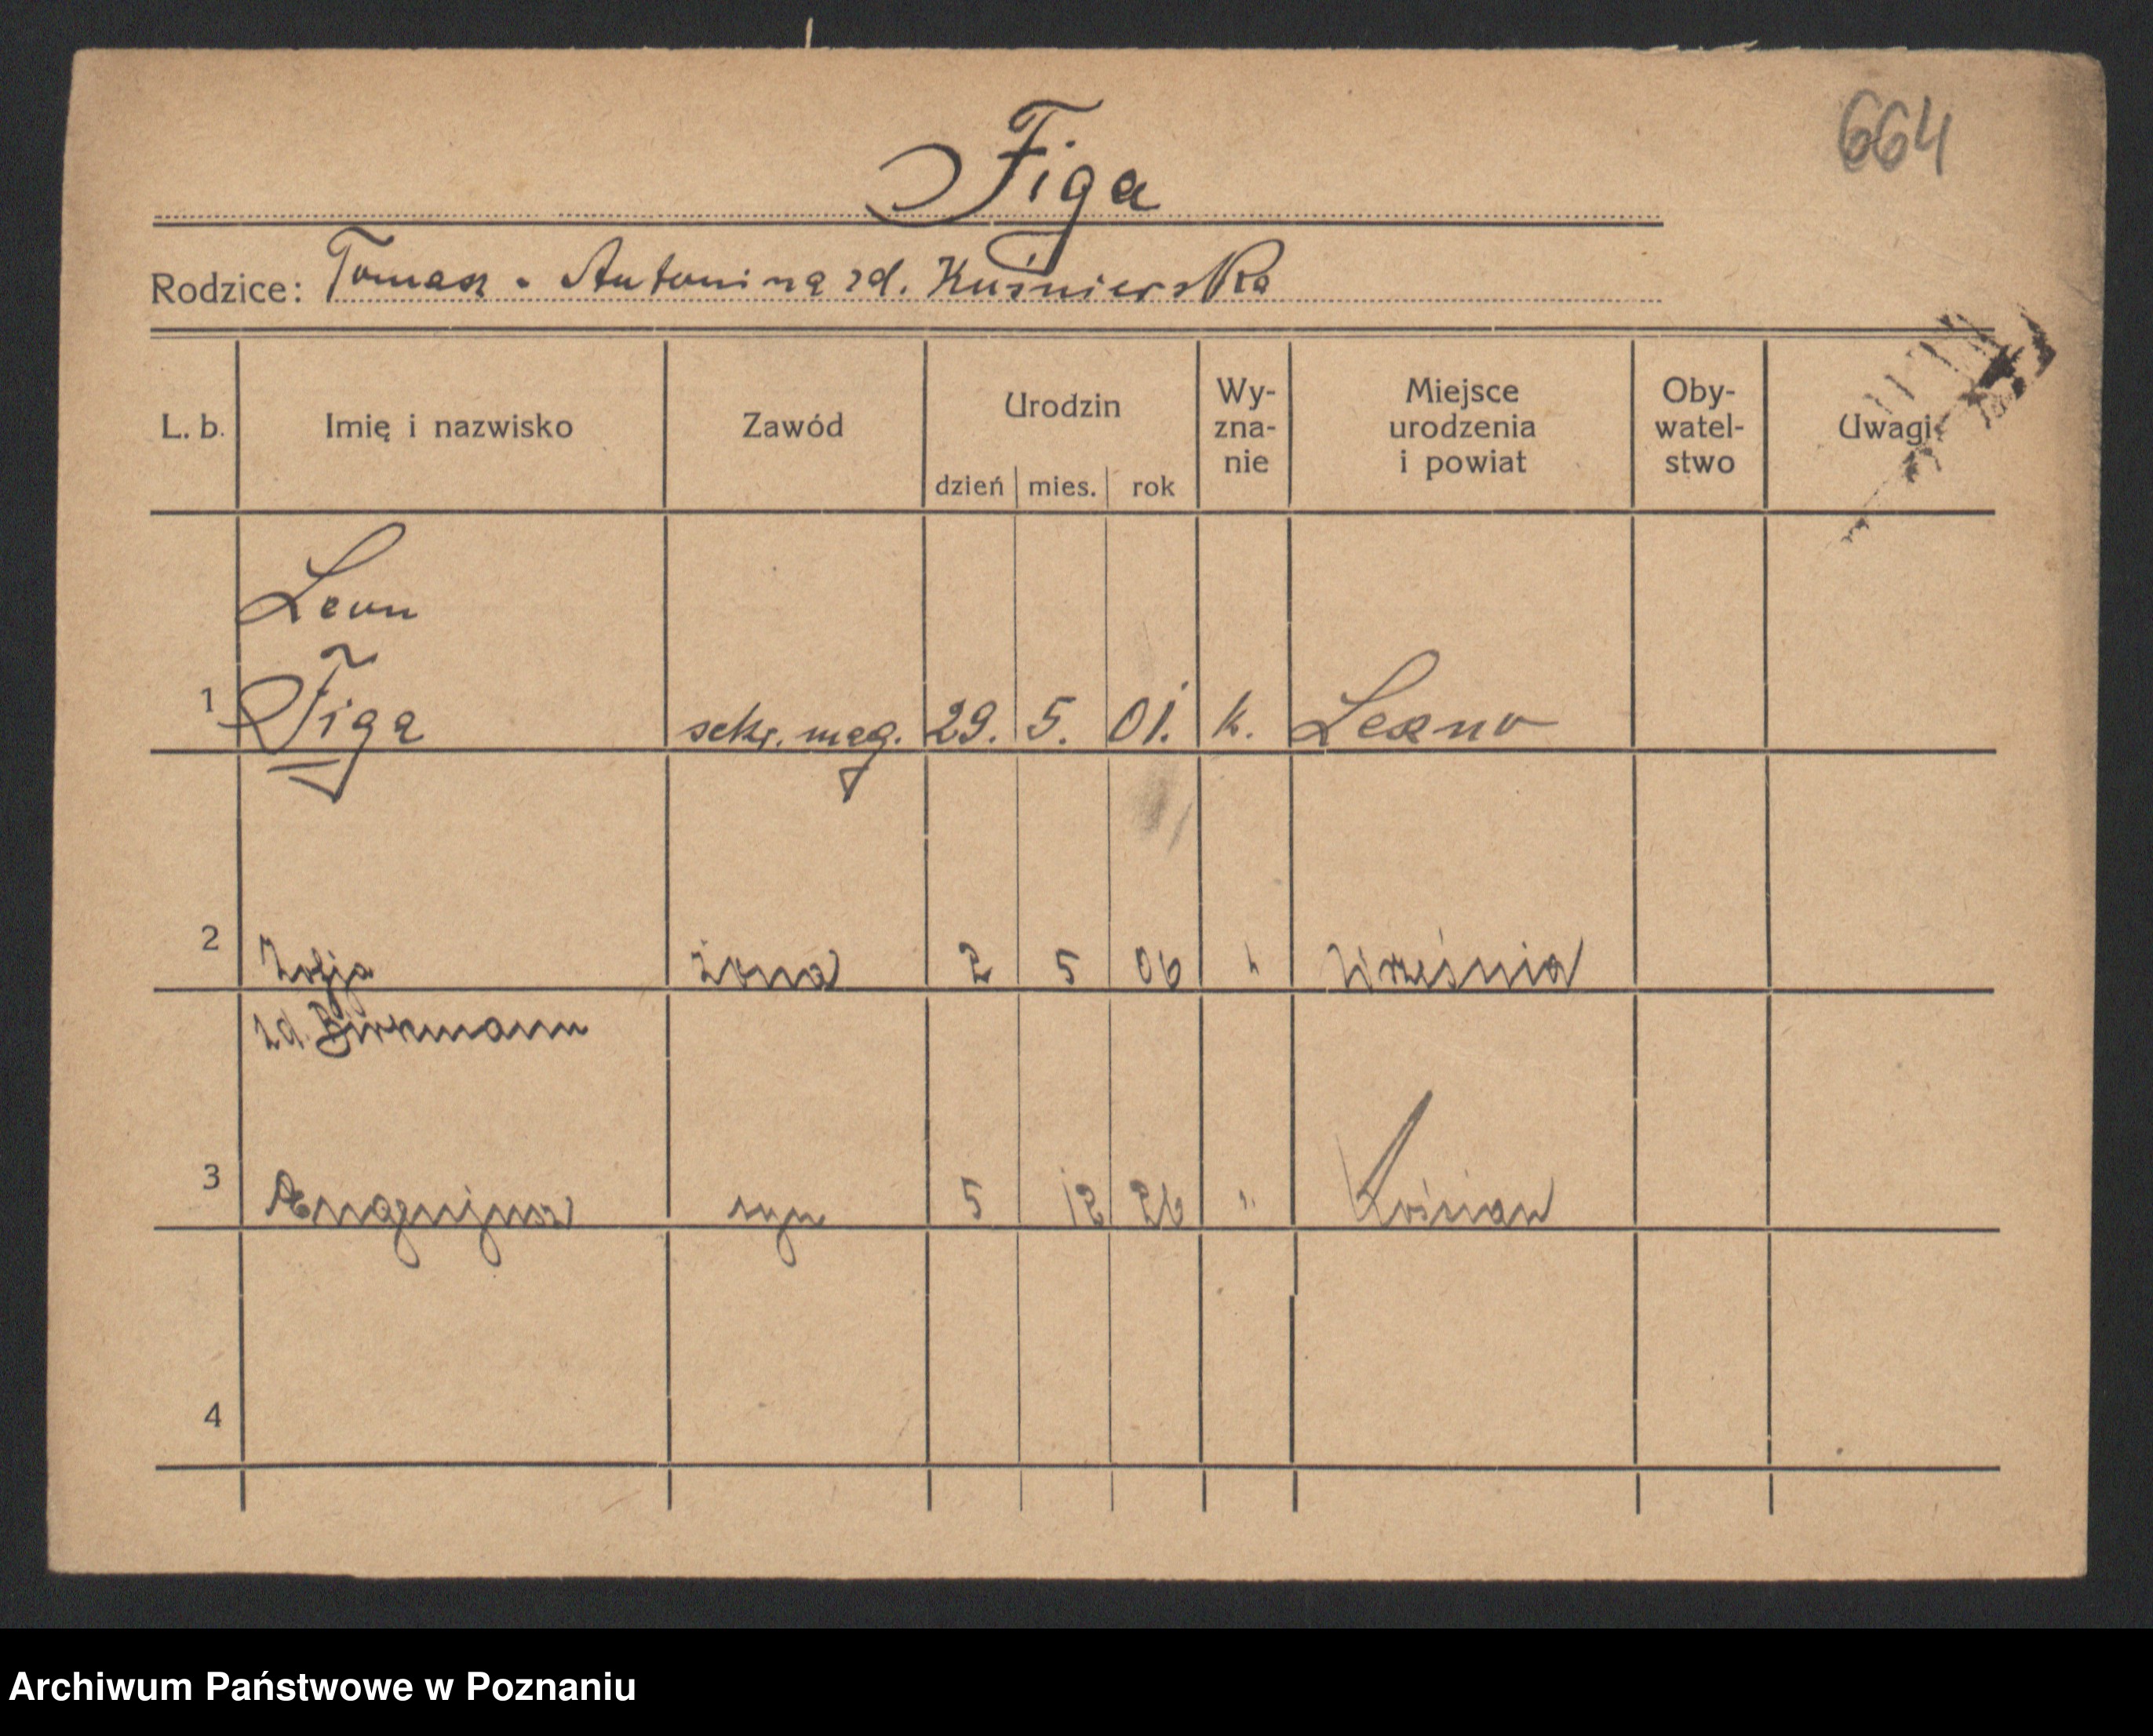 664
Figa
Rodzice: Tomasz - Antonina zd. Kuśnierska
L. b. Imię i nazwisko Zawód Urodzin dzień mies. rok Wy-zna-nie Miejsce urodzenia i powiat Oby-watel-stwo Uwagi
Leon
1 Figa sekr. mag. 29. 5. 01. k. Leszno
2 Zofja żona 2 5 06 " Września
zd. Birkmann
3 Eugenjusz syn 5 12 26 " Kościan
4
Archiwum Państwowe w Poznaniu